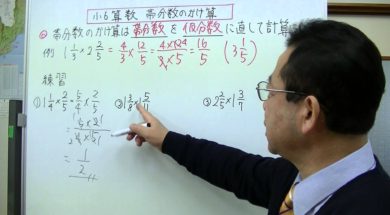 小6算数 帯分数のかけ算
◎帯分数のかけ算は帯分数を仮分数に直して計算
例 1 1/3 × 2 2/5 = 4/3 × 12/5 = 4×12/3×5 = 16/5 (3 1/5)
練習
① 1 1/4 × 2/5 = 5/4 × 2/5 ③ 2 2/5 × 1 3/7
= 5×2/4×5
= 1/2